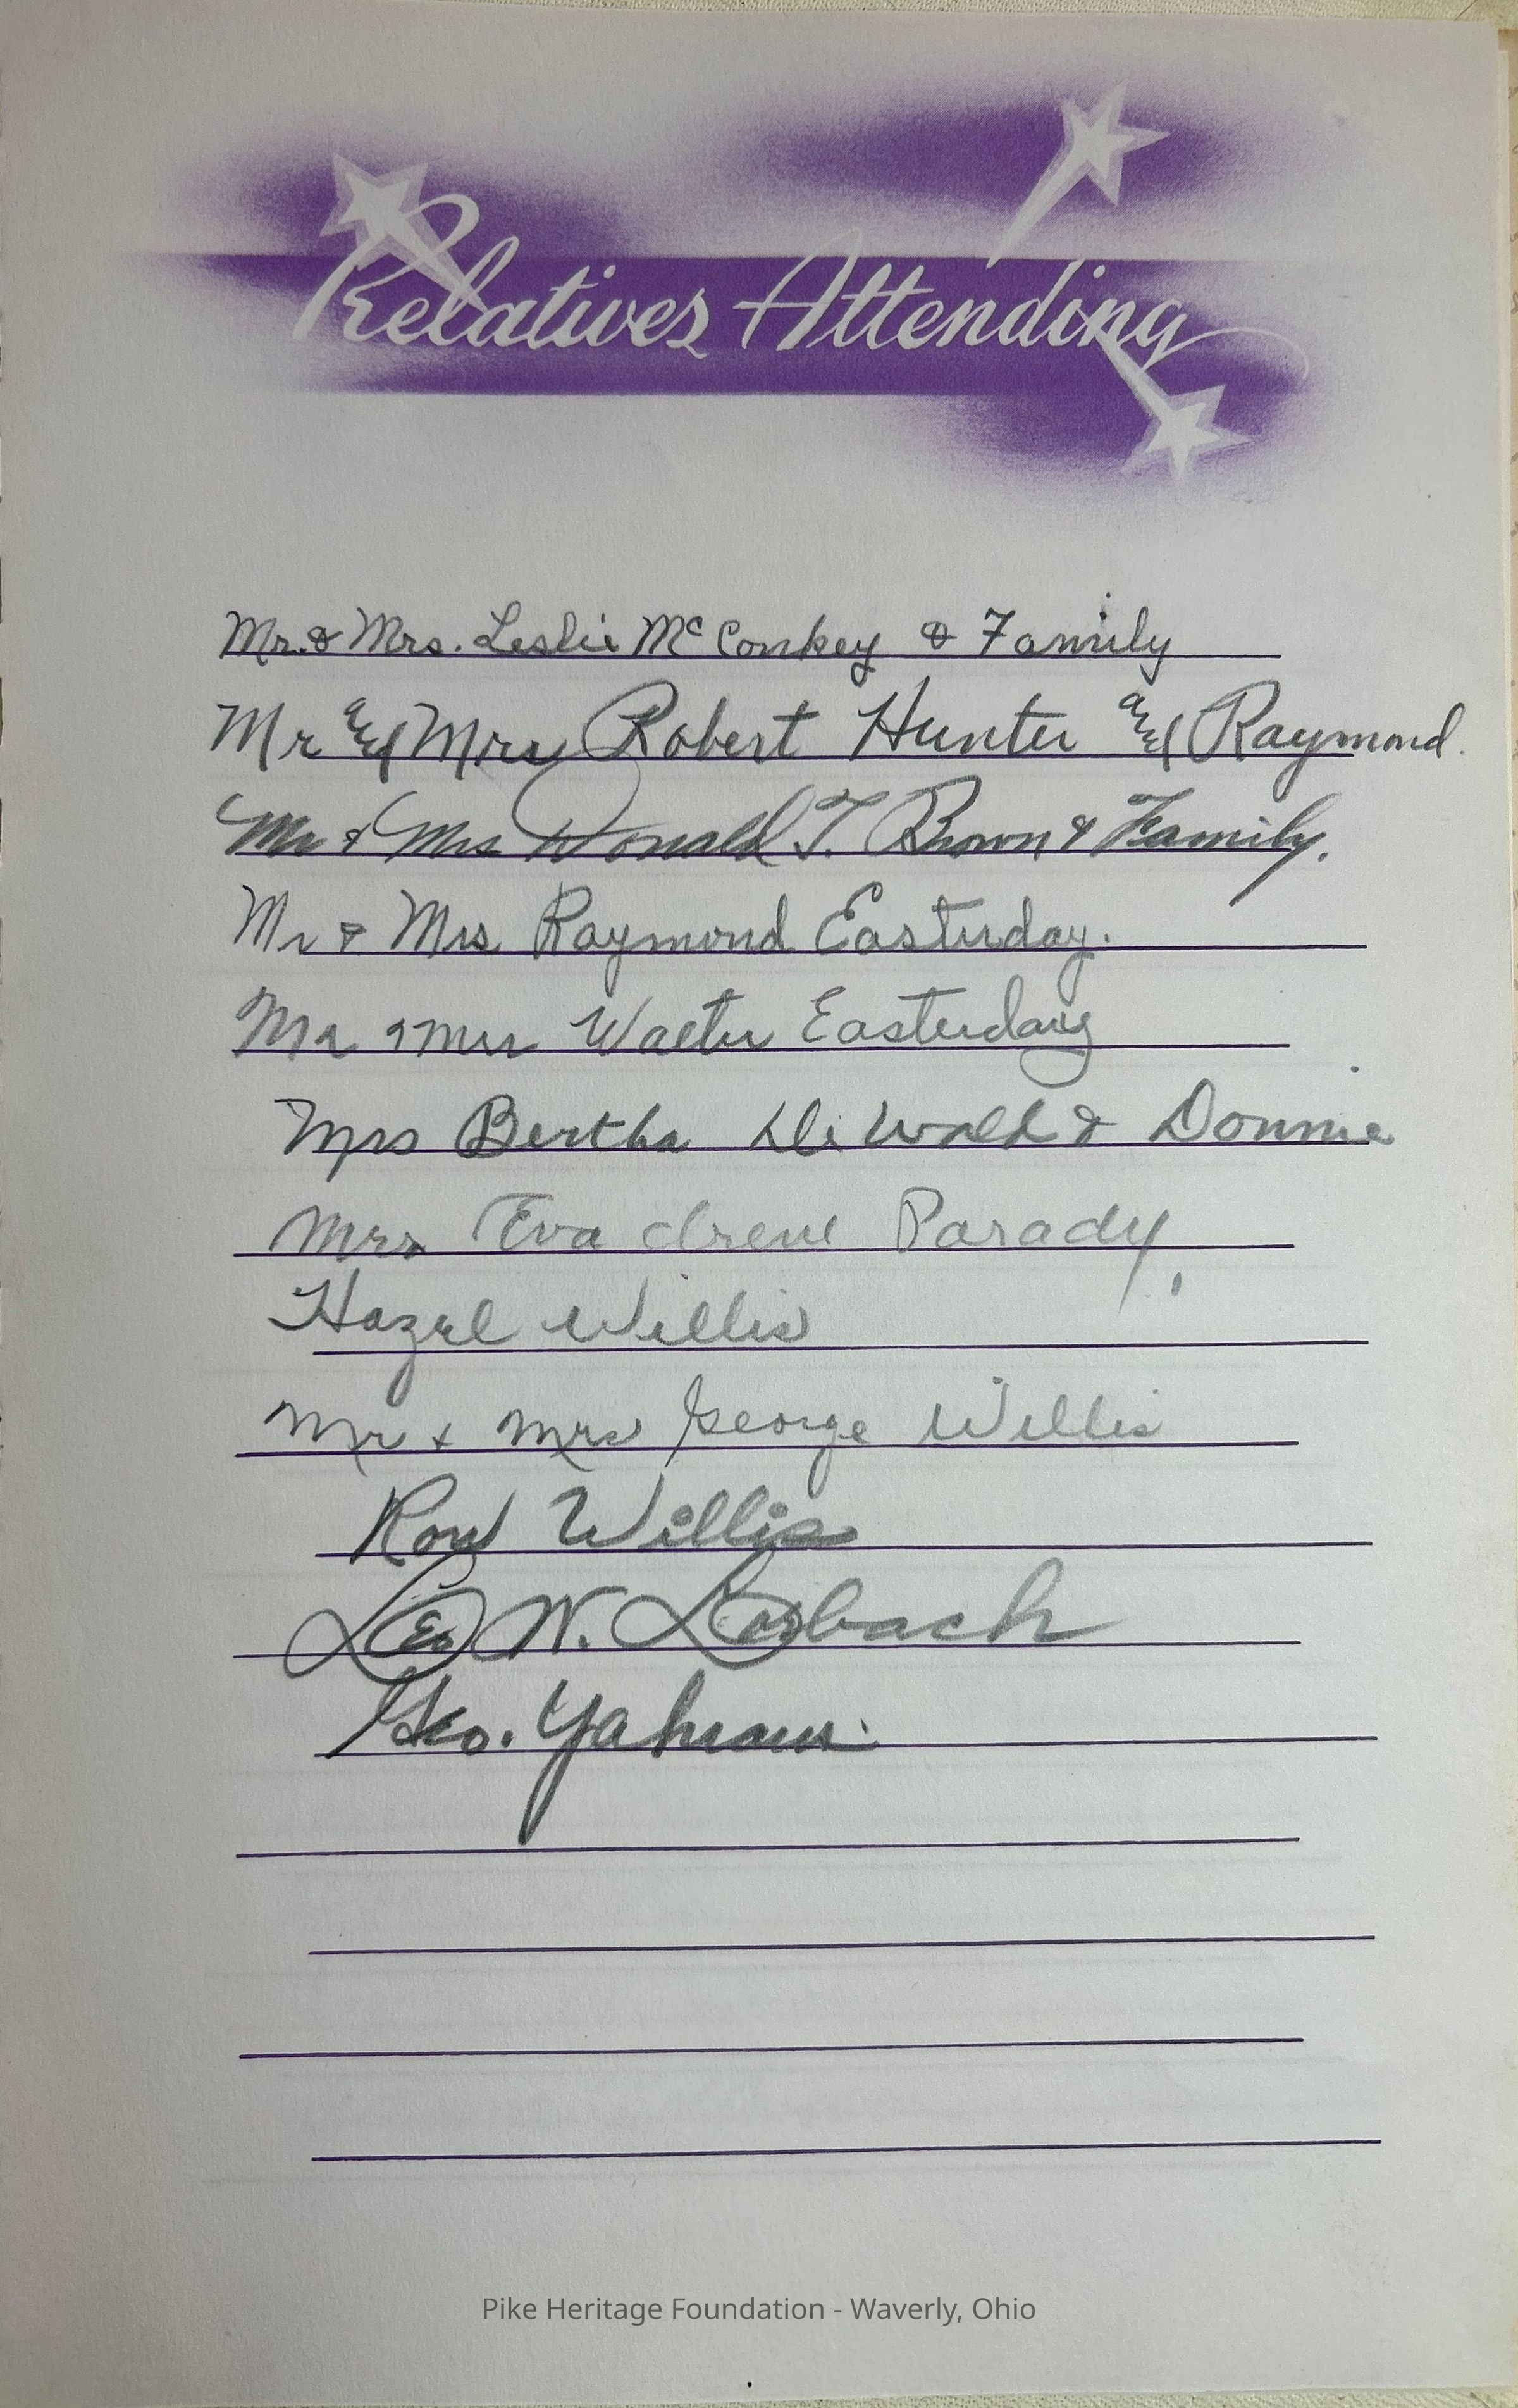 Relatives Attending
Mr. & Mrs. Leslie McConkey & Family
Mr and Mrs Robert Hunter and Raymond.
Mr & Mrs Donald T. Brown & Family.
Mr & Mrs Raymond Easterday.
Mr & Mrs Walter Easterday
Mrs Bertha DeWald & Donnie
Mrs Eva Irene Parady
Hazel Willis
Mr + Mrs George Willis
Willis
Leo W. Losbach
Geo.
Pike Heritage Foundation - Waverly, Ohio